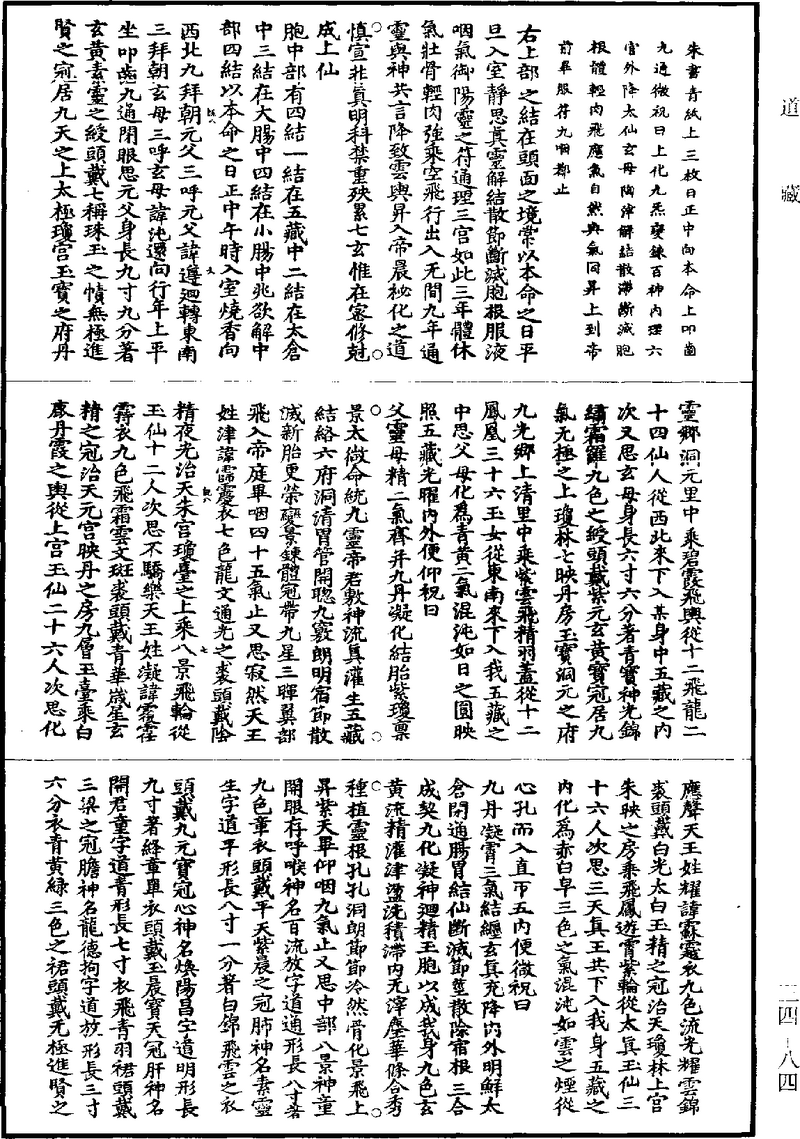 道藏
朱書青紙上三枚日正中向本命上叩齒
九通微祝曰上化九炁襃鍊百神內理六
官外降太仙玄母陶津解結散滯斷滅胞
根體輕肉飛應氣自然與氣同昇上到帝
前畢服符九咽都止
右上部之結在頭面之境常以本命之日平
旦入室靜思真靈解結散節斷滅胞根服液
咽氣御陽靈之符通理三宮如此三年體休
氣壯骨輕肉強乘空飛行出入无間九年通
靈與神共言降致雲輿昇入帝晨祕化之道
慎宣非真明科禁重殃累七玄惟在密修尅
成上仙
胞中部有四結一結在五藏中二結在太倉
中三結在大腸中四結在小腸中兆欲解中
部四結以本命之日正中午時入室燒香向
西北九拜朝元父三呼元父諱遵迴轉東南
三拜朝玄母三呼玄母諱沌還向行年上平
坐叩齒九通閉眼思元父身長九寸九分著
玄黃素靈之綬頭戴七稱珠玉之幘無極進
賢之冠居九天之上太極瓊宮玉寶之府丹
靈鄉洞元里中乘碧霞飛輿從十二飛龍二
十四仙人從西北來下入某身中五藏之內
次又思玄母身長六寸六分著青寶神光錦
繡霜羅九色之綬頭戴紫元玄黃寶冠居九
氣无極之上瓊林七映丹房玉寶洞元之府
九光鄉上清里中乘紫雲飛精羽蓋從十二
鳳凰三十六玉女從東南來下入我五藏之
中思父母化為青黃二氣混沌如日之圓映
照五藏光曜內外便仰祝曰
父靈母精二氣齊并九丹凝化結胎紫瓊稟
景太微命統九靈帝君敷神流真灌生五藏
結絡六府洞清胃管開聰九竅朗明宿節散
滅新胎更榮變景鍊體冠帶九星三暉翼部
飛入帝庭畢咽四十五氣止又思寂然天王
姓津諱衣七色龍文通光之裘頭戴陰
精夜光治天朱宮瓊臺之上乘八景飛輪從
玉仙十二人次思不驕樂天王姓凝諱
衣九色飛霜雲文斑裘頭戴青華歲星玄
精之冠治天元宮映丹之房九層玉臺乘白
鹿丹霞之輿從上宮玉仙二十六人次思化
應聲天王姓耀諱衣九色流光耀雲錦
裘頭戴白光太白玉精之冠治天瓊林上宮
朱映之房乘飛鳳遊霄紫輪從太真玉仙三
十六人次思三天真王共下入我身五藏之
內化為赤白皁三色之氣混沌如雲之煙從
心孔而入直帀五內便微祝曰
九丹凝霄三氣結纏玄真充降內外明鮮太
倉閉通腸胃結仙斷滅節莖散除宿根三合
成契九化凝神迴精玉胞以成我身九色玄
黃流精灌津盪洗積滯內无滓塵華條合秀
種植靈根孔孔洞朗節節泠然骨化景飛上
昇紫天畢仰咽九氣止又思中部八景神童
閉眼存呼喉神名百流放字道通形長八寸著
九色章衣頭戴平天紫晨之冠肺神名素靈
生字道平形長八寸一分著白錦飛雲之衣
頭戴九元寶冠心神名煥陽昌字道明形長
九寸著絳章單衣頭戴玉晨寶天冠肝神名
開君童字道青形長七寸衣飛青羽裙頭戴
三梁之冠膽神名龍德拘字道放形長三寸
六分衣青黃綠三色之裙頭戴无極進賢之
三四-八四